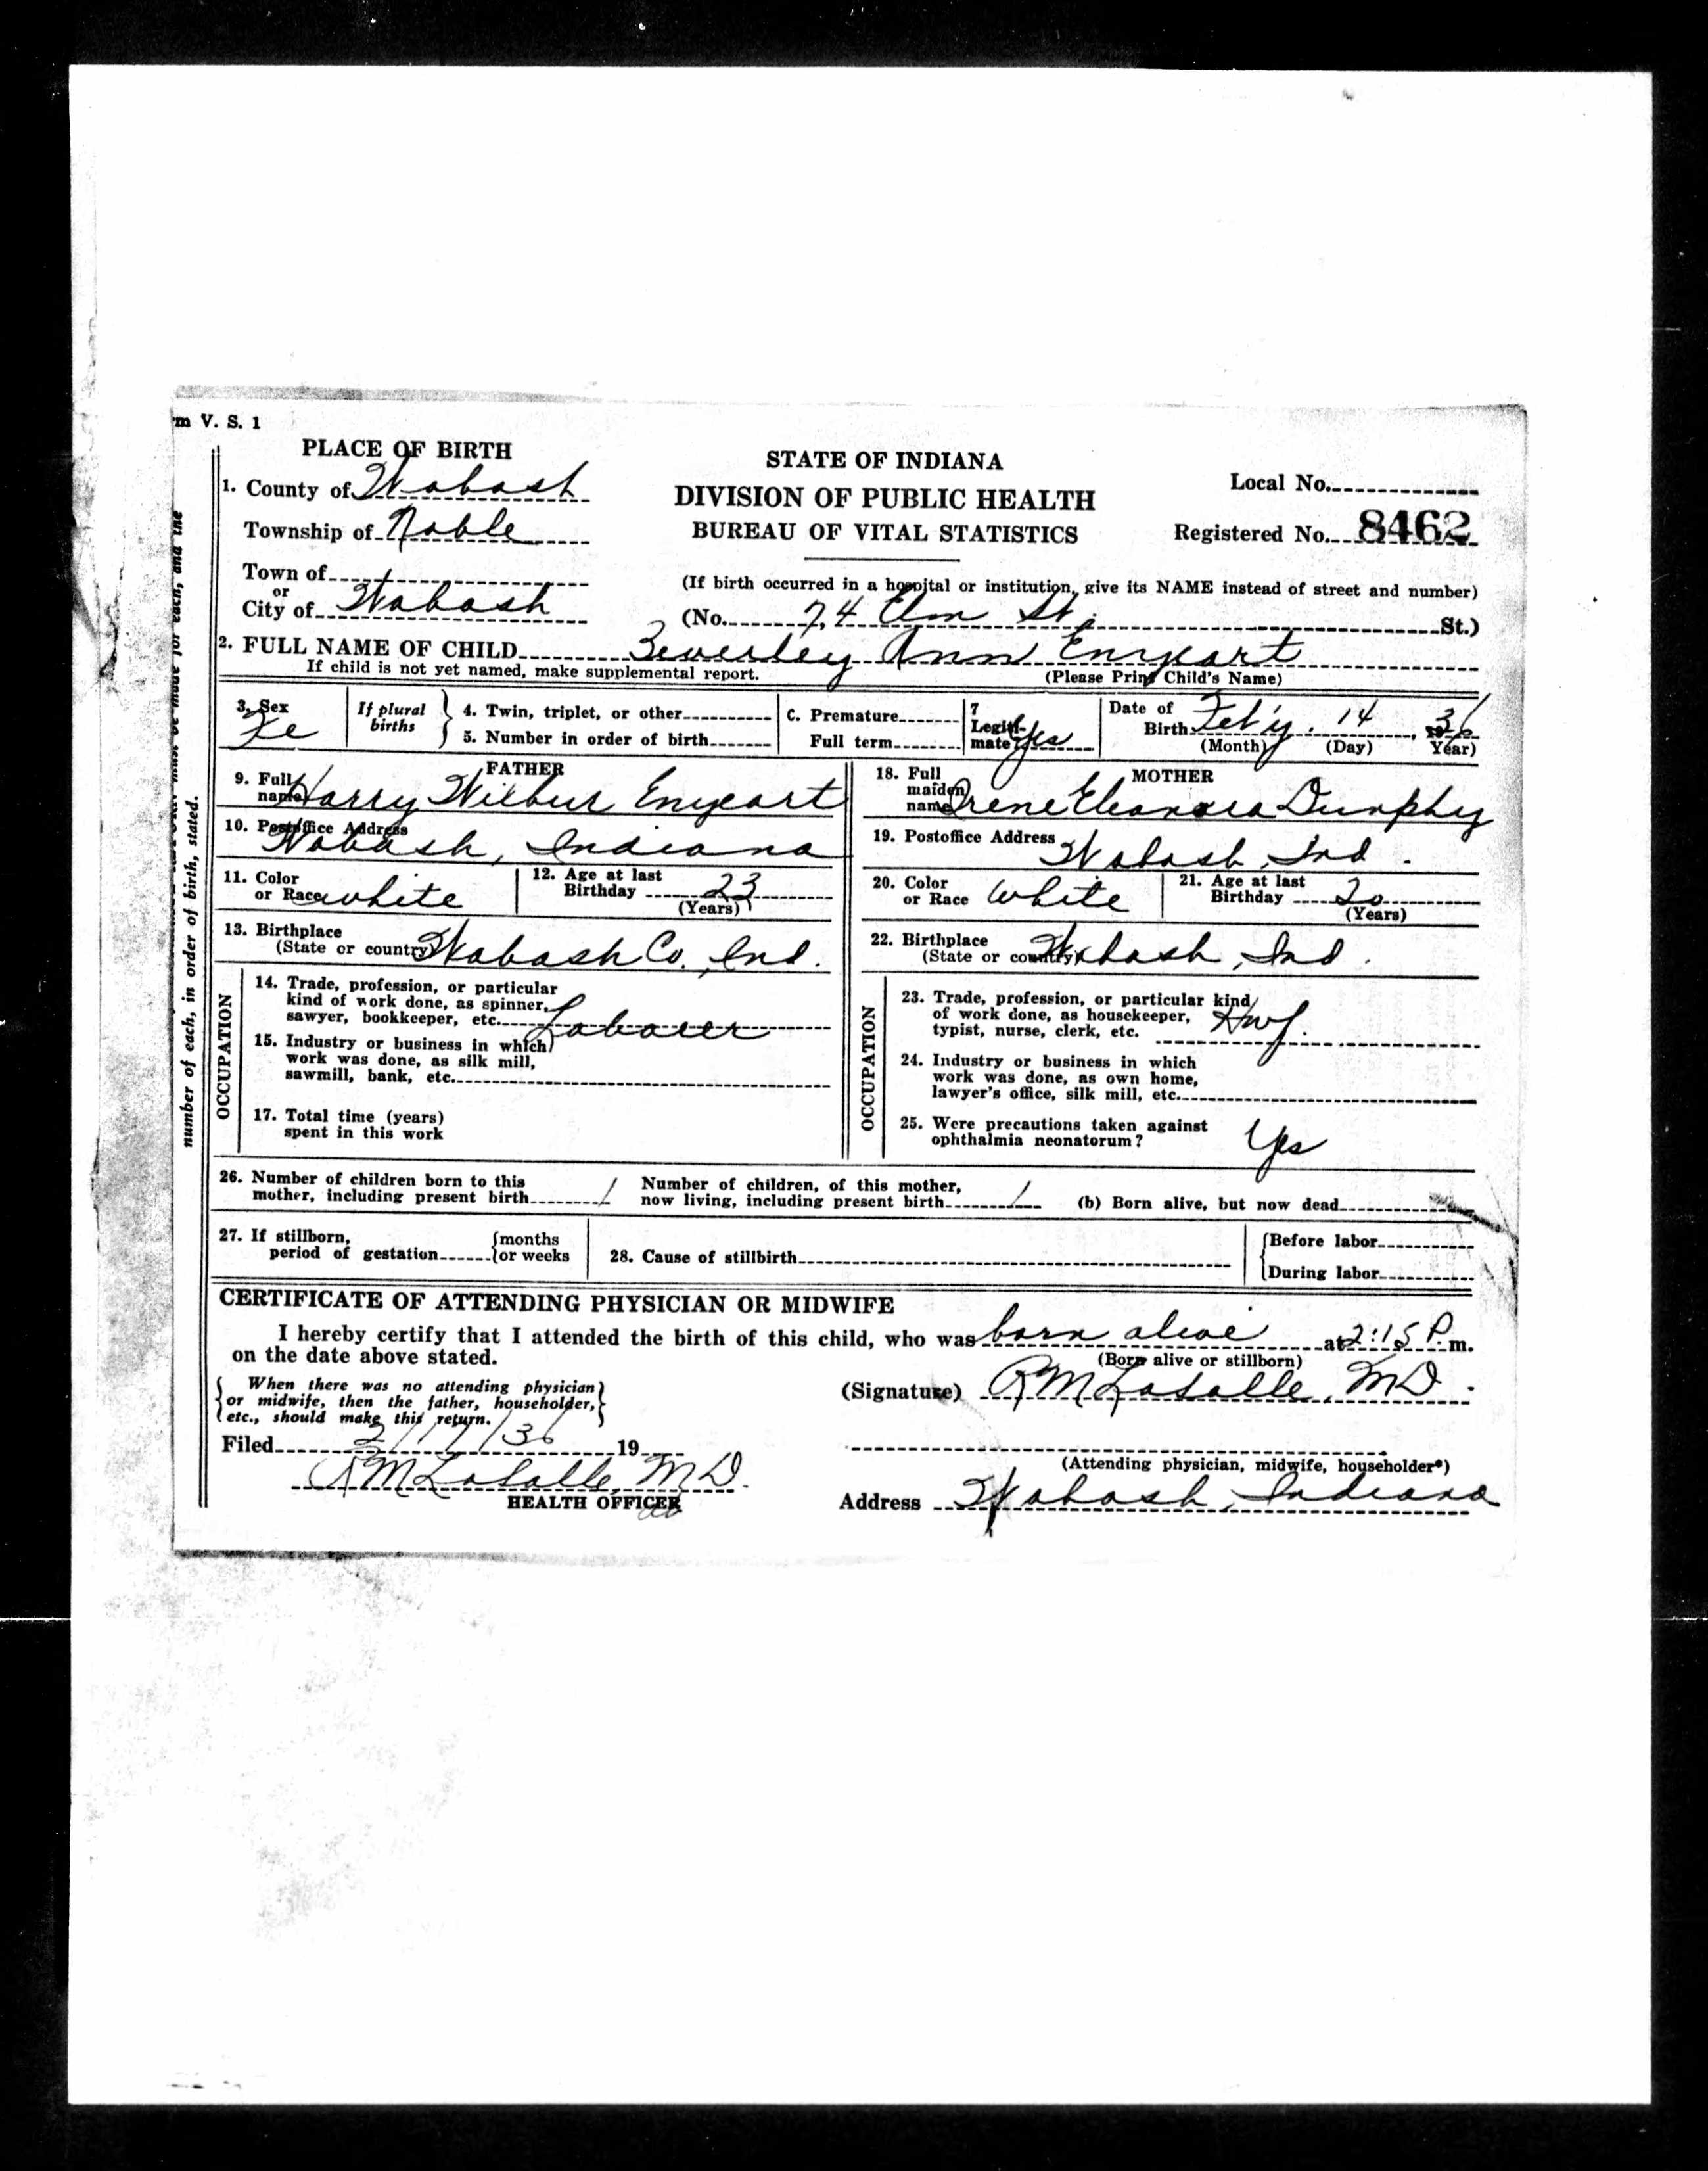 m V. S. 1
PLACE OF BIRTH
1. County of Wabash
Township of Noble
Town of
or
City of Wabash
STATE OF INDIANA
DIVISION OF PUBLIC HEALTH
BUREAU OF VITAL STATISTICS
Local No.
Registered No. 8462
(If birth occurred in a hospital or institution, give its NAME instead of street and number)
(No. 74 Elm St. St.)
2. FULL NAME OF CHILD Beverley Ann Enyeart
If child is not yet named, make supplemental report. (Please Print Child's Name)
3. Sex Fe
If plural births
4. Twin, triplet, or other
5. Number in order of birth
C. Premature
Full term
7 Legiti-mate? Yes
Date of Birth Feb'y. 14, 1936
(Month) (Day) Year)
FATHER
9. Full name Harry Wilbur Enyeart
10. Postoffice Address
Wabash, Indiana
11. Color or Race white
12. Age at last Birthday 23
(Years)
13. Birthplace
(State or country) Wabash Co., Ind.
OCCUPATION
14. Trade, profession, or particular
kind of work done, as spinner,
sawyer, bookkeeper, etc. Laborer
15. Industry or business in which
work was done, as silk mill,
sawmill, bank, etc.
17. Total time (years)
spent in this work
MOTHER
18. Full maiden name Irene Eleanora Dunphy
19. Postoffice Address
Wabash, Ind.
20. Color or Race white
21. Age at last Birthday 20
(Years)
22. Birthplace
(State or country) Wabash, Ind.
OCCUPATION
23. Trade, profession, or particular kind
of work done, as housekeeper,
typist, nurse, clerk, etc. Hwf.
24. Industry or business in which
work was done, as own home,
lawyer's office, silk mill, etc.
25. Were precautions taken against
ophthalmia neonatorum? Yes
26. Number of children born to this
mother, including present birth 1
Number of children, of this mother,
now living, including present birth 1
(b) Born alive, but now dead
27. If stillborn,
period of gestation {months
{or weeks
28. Cause of stillbirth
{Before labor
{During labor
CERTIFICATE OF ATTENDING PHYSICIAN OR MIDWIFE
I hereby certify that I attended the birth of this child, who was born alive at 2:15 P. m.
on the date above stated. (Born alive or stillborn)
{When there was no attending physician
or midwife, then the father, householder,
etc., should make this return.}
(Signature) RM LaSalle, MD.
Filed 2/17/36 19
RM LaSalle, MD.
HEALTH OFFICER
(Attending physician, midwife, householder*)
Address Wabash, Indiana
number of each, in order of birth, stated.
must be made for each, and the